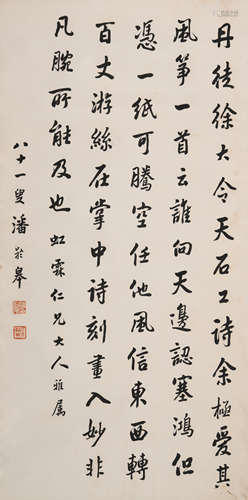 丹徒徐大令天石工詩余極愛其
風箏一首云誰向天邊認塞鴻但
憑一紙可騰空任他風信東西轉
百丈游絲在掌中詩刻畫入妙非
凡腕所能及也 虹霖仁兄大人雅属
八十一叟潘齡皋